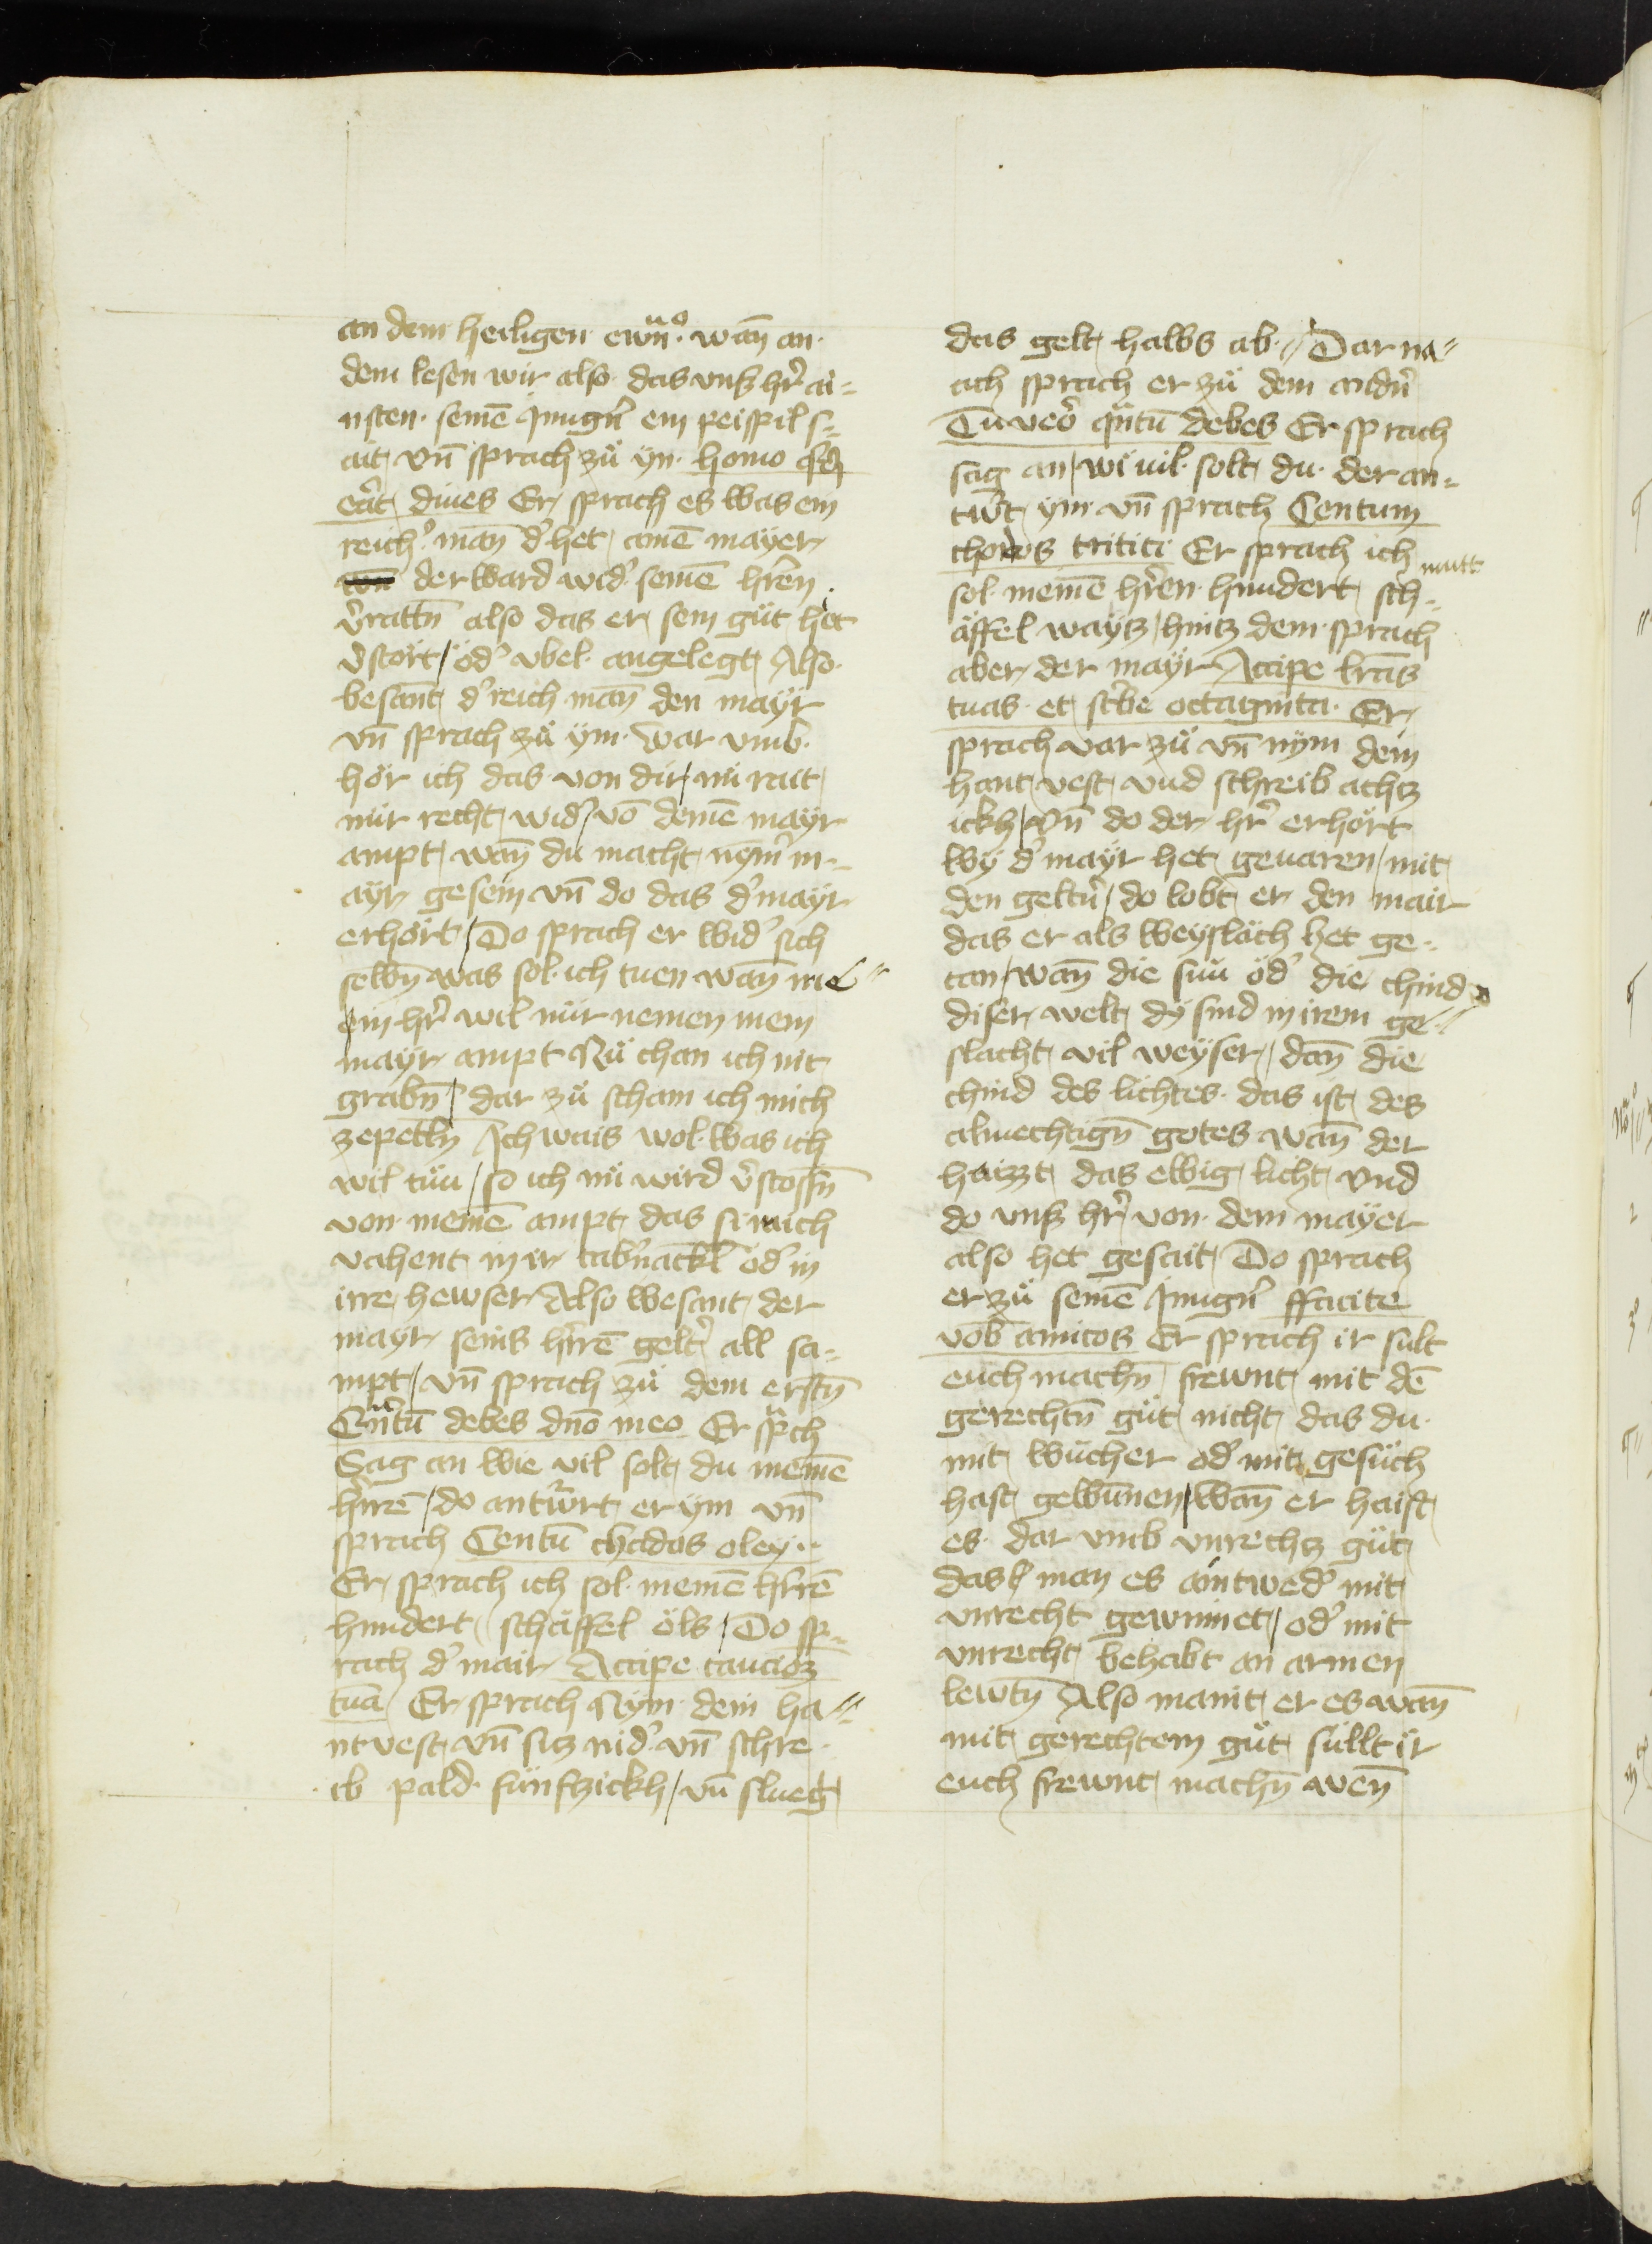 an dem heiligen ewn̄ᵒ. wan̄ an
dem lesen wir also das vnß hr̄ ai=
nsten semē Jnngn̄ ein peispil s=
ait vn̄ sprach zů yn homo q̄d
erat diues Er sprach es was ein
reichᵒ man̄ dᵒ het ainē mayer
der ward widᵒ seinē hr̄en
v̄rattn̄ also das er sein gůt het
v̄stört / odᵒ vbel angelegt Also
besant dᵒ reich man̄ den mayr
vn̄ sprach zů ym war vmb
hör ich das von dir / nů rait
mir recht widᵒ / vō deinē mayr
ampt wan̄ du macht nym̄ m=
ayr gesein vn̄ do das dᵒ mayr
erhört / Do sprach er widᵒ sich
selbn̄ was sol ich tuen wan̄ me=
ein hr̄ wil mir nemen mein
mayr ampt Nů chan ich nit
grabn̄ / dar zů scham ich mich
zepetln̄ Ich wais wol was ich
wil tůn / so ich nů wird v̄stossn̄
von meinē ampt das si mich
vahent in ir tabᵒnackl odᵒ in
irre hewser Also besant der
mayr seins hr̄rē geltᵒ all sa=
mpt / vn̄ sprach zů dem erstn̄
Qn̄tū debes dno meo Er spᵃch
Sag an wie vil solt du meinē
hr̄rē / do antwᵒrt er ym vn̄
sprach Centū chados oley
Er sprach ich sol meinē hr̄rē
hundert schäffel öls / Do sp=
rach dᵒ mair Accipe caucioʒ
tuā Er sprach Nym dein ha=
ntvest vn̄ siz nidᵒ vn̄ schre
ib pald fünfzickh / vn̄ slueg
das gelt halbs ab // Dar na=
ach sprach er zů dem andn̄
Tu veᵒ qn̄tū debes Er sprach
sag an / wi vil solt du der an=
twᵒt ym vn̄ sprach Centum
choros tritici Er sprach ich mutt
sol meinē hr̄en hundert sch=
äffel waytz / hintz dem sprach
aber der mayr Accipe lr̄as
tuas et scᵒbe octaginta Er
sprach var zů vn̄ nym dein
hant vest vnd schreib achtz
ickh / vn̄ do der hr̄ erhört
wy dᵒ mayr het geuaren / mit
den geltn̄ / do lobt er den mair
das er als weysläch het ge=
tan / wan̄ die sun odᵒ die chind
diser welt dy sind in irem ge=
slacht vil weyser / dan̄ die
chind des lichtes das ist des
almechtign̄ gotes wan̄ der
haizzt das ewig licht vnd
do vnß hr̄ von dem mayer
also het gesait Do sprach
er zů seinē Jnngn̄ ffacite
vob̄ amicos Er sprach ir sult
euch machn̄ frewnt mit dē
gerechtn̄ gůt nicht das du
mit wucher odᵒ mit gesůch
hast gewunnen / wan̄ er haist
es dar vmb vnrechtz gůt
das man es aintwedᵒ mit
vnrecht gewinnet / odᵒ mit
vnrecht behabt an armen
lewtn̄ Also manit er es wan̄
mit gerechtem gůt süllt ir
euch frewnt machn̄ wen̄